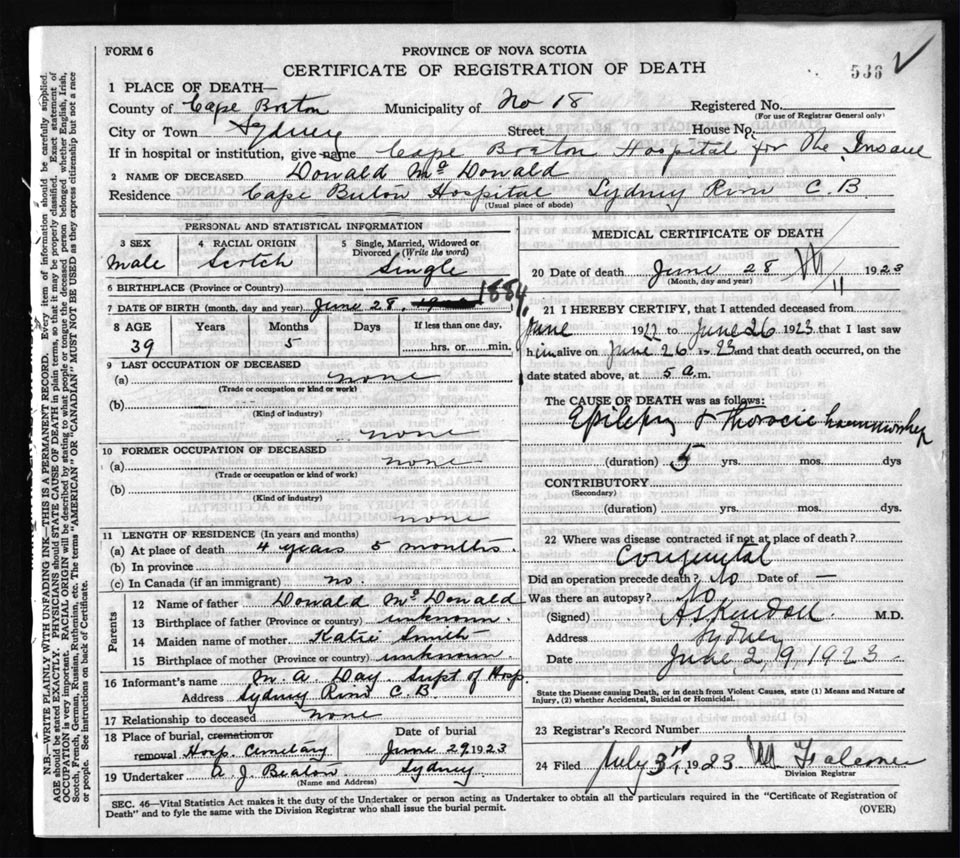 FORM 6
PROVINCE OF NOVA SCOTIA
CERTIFICATE OF REGISTRATION OF DEATH
536
1 PLACE OF DEATH—
County of Cape Breton Municipality of No 18 Registered No.
(For use of Registrar General only)
City or Town Sydney Street House No.
If in hospital or institution, give name Cape Breton Hospital for The Insane
2 NAME OF DECEASED Donald Mc Donald
Residence Cape Breton Hospital Sydney River C. B
(Usual place of abode)
PERSONAL AND STATISTICAL INFORMATION
3 SEX 4 RACIAL ORIGIN 5 Single, Married, Widowed or Divorced (Write the word)
Male Scotch Single
6 BIRTHPLACE (Province or Country)
7 DATE OF BIRTH (month, day and year) June 28, 1884
8 AGE Years Months Days If less than one day,
39 5 hrs. or min.
9 LAST OCCUPATION OF DECEASED
(a) none
(Trade or occupation or kind or work)
(b)
(Kind of industry)
none
10 FORMER OCCUPATION OF DECEASED
(a) none
(Trade or occupation or kind of work)
(b)
(Kind of industry)
none
11 LENGTH OF RESIDENCE (In years and months)
(a) At place of death 4 years 5 months.
(b) In province
(c) In Canada (if an immigrant) no.
Parents
12 Name of father Donald Mc Donald
13 Birthplace of father (Province or country) unknown.
14 Maiden name of mother Katie Smith
15 Birthplace of mother (Province or country) unknown
16 Informant's name M. A. Day Supt of Hosp.
Address Sydney River C. B.
17 Relationship to deceased none
18 Place of burial, cremation or removal Hosp. Cemetary
Date of burial June 29 1923
19 Undertaker A. J. Beaton Sydney.
(Name and Address)
MEDICAL CERTIFICATE OF DEATH
20 Date of death June 28 1923
(Month, day and year)
11
21 I HEREBY CERTIFY, that I attended deceased from
June 1922 to June 26 1923 that I last saw
him alive on June 26 1923 and that death occurred, on the
date stated above, at 5 a.m.
The CAUSE OF DEATH was as follows:
Epilepsy & Thoracic haemorrhage
(duration) 5 yrs. mos. dys
CONTRIBUTORY
(Secondary)
(duration) yrs. mos. dys.
22 Where was disease contracted if not at place of death?
Congenital
Did an operation precede death? No Date of —
Was there an autopsy? No
(Signed) A S Kendall M.D.
Address Sydney
Date June 29, 1923
State the Disease causing Death, or in death from Violent Causes, state (1) Means and Nature of
Injury, (2) whether Accidental, Suicidal or Homicidal.
23 Registrar's Record Number
24 Filed July 3rd 1923 Falconer
Division Registrar
SEC. 46—Vital Statistics Act makes it the duty of the Undertaker or person acting as Undertaker to obtain all the particulars required in the "Certificate of Registration of
Death" and to fyle the same with the Division Registrar who shall issue the burial permit. (OVER)
N.B.—WRITE PLAINLY WITH UNFADING INK—THIS IS A PERMANENT RECORD. Every item of information should be carefully supplied.
AGE should be stated EXACTLY. PHYSICIANS should STATE CAUSE OF DEATH in plain terms, so that it may be properly classified. Exact statement of
OCCUPATION is very important. RACIAL ORIGIN will be described by stating to what people or tongue the deceased person belonged whether English, Irish,
Scotch, French, German, Russian, Ruthenian, etc. The terms "AMERICAN" OR "CANADIAN" MUST NOT BE USED as they express citizenship but not a race
or people. See instructions on back of Certificate.